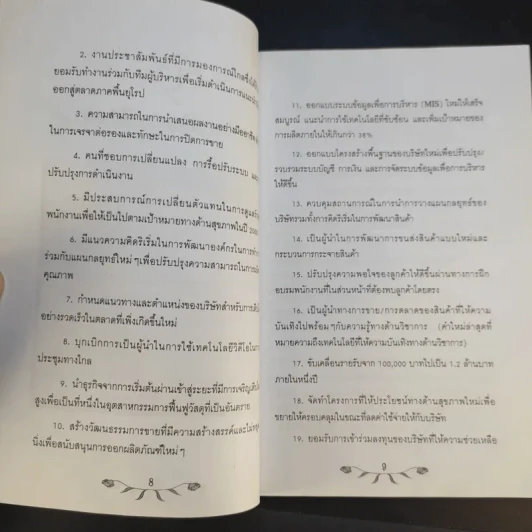 2. งานประชาสัมพันธ์ที่มีการมองการณ์ไกลซึ่งได้
ยอมรับทำงานร่วมกับทีมผู้บริหารเพื่อเริ่มดำเนินการแนะนำ
ออกสู่ตลาดภาคพื้นยุโรป
3. ความสามารถในการนำเสนอผลงานอย่างมืออาชีพ
ในการเจรจาต่อรองและทักษะในการปิดการขาย
4. คนที่ชอบการเปลี่ยนแปลง การรื้อปรับระบบ และ
ปรับปรุงการดำเนินงาน
5. มีประสบการณ์การเปลี่ยนตัวแทนในการดูแล
พนักงานเพื่อให้เป็นไปตามเป้าหมายทางด้านสุขภาพในปี
6. มีแนวความคิดริเริ่มในการพัฒนาองค์กรในการทำ
ร่วมกับแผนกลยุทธ์ใหม่ๆเพื่อปรับปรุงความสามารถในการ
คุณภาพ
7. กำหนดแนวทางและตำแหน่งของบริษัทสำหรับการ
อย่างรวดเร็วในตลาดที่เพิ่งเกิดขึ้นใหม่
8. บุกเบิกการเป็นผู้นำในการใช้เทคโนโลยีวิดีโอในการ
ประชุมทางไกล
9. นำธุรกิจจากการเริ่มต้นผ่านเข้าสู่ระยะที่มีการเจริญเติบโต
สูงเพื่อเป็นที่หนึ่งในอุตสาหกรรมการฟื้นฟูวัสดุที่เป็นอันตราย
10. สร้างวัฒนธรรมการขายที่มีความสร้างสรรค์และไม่หยุด
นิ่งเพื่อสนับสนุนการออกผลิตภัณฑ์ใหม่ๆ
8
11. ออกแบบระบบข้อมูลเพื่อการบริหาร (MIS) ใหม่ให้เสร็จ
สมบูรณ์ แนะนำการใช้เทคโนโลยีที่ซับซ้อน และเพิ่มเป้าหมายของ
การผลิตภายในให้เกินกว่า 38%
12. ออกแบบโครงสร้างพื้นฐานของบริษัทใหม่เพื่อปรับปรุง/
รวบรวมระบบบัญชี การเงิน และการจัดระบบข้อมูลเพื่อการบริหาร
ให้ดีขึ้น
13. ควบคุมสถานการณ์ในการนำการวางแผนกลยุทธ์ของ
บริษัทรวมทั้งการคิดริเริ่มในการพัฒนาสินค้า
14. เป็นผู้นำในการพัฒนาการขนส่งสินค้าแบบใหม่และ
กระบวนการกระจายสินค้า
15. ปรับปรุงความพอใจของลูกค้าให้ดีขึ้นผ่านทางการฝึก
อบรมพนักงานที่ในส่วนหน้าที่ต้องพบลูกค้าโดยตรง
16. เป็นผู้นำทางการขาย/การตลาดของสินค้าที่ให้ความ
บันเทิงไปพร้อมๆกับความรู้ทางด้านวิชาการ (คำใหม่ล่าสุดที่
หมายความถึงเทคโนโลยีที่ให้ความบันเทิงทางด้านวิชาการ)
17. ขับเคลื่อนรายรับจาก 100,000 บาทไปเป็น 1.2 ล้านบาท
ภายในหนึ่งปี
18. จัดทำโครงการที่ให้ประโยชน์ทางด้านสุขภาพใหม่เพื่อ
ขยายให้ครอบคลุมในขณะที่ลดค่าใช้จ่ายให้กับบริษัท
19. ยอมรับการเข้าร่วมลงทุนของบริษัทที่ให้ความช่วยเหลือ
9